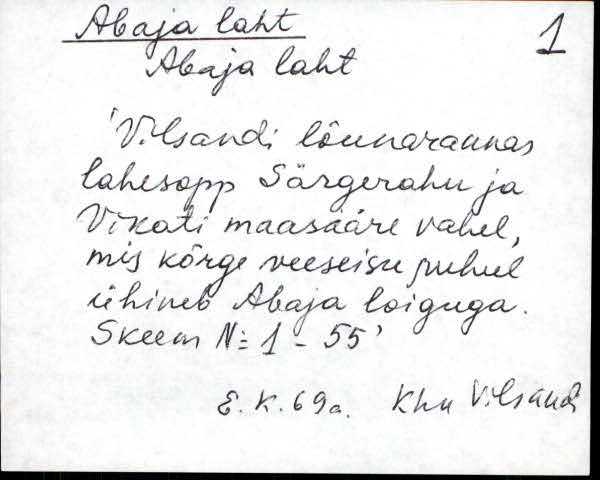 Abaja laht
1
Abaja laht
'Vilsandi lõunarannas
lahesopp Särgerahu ja
Vikati maasääre vahel,
mis kõrge veeseisu puhul
ühineb Abaja loiguga.
Skeem N= 1 - 55'
E.K. 69a. Khn Vilsandi